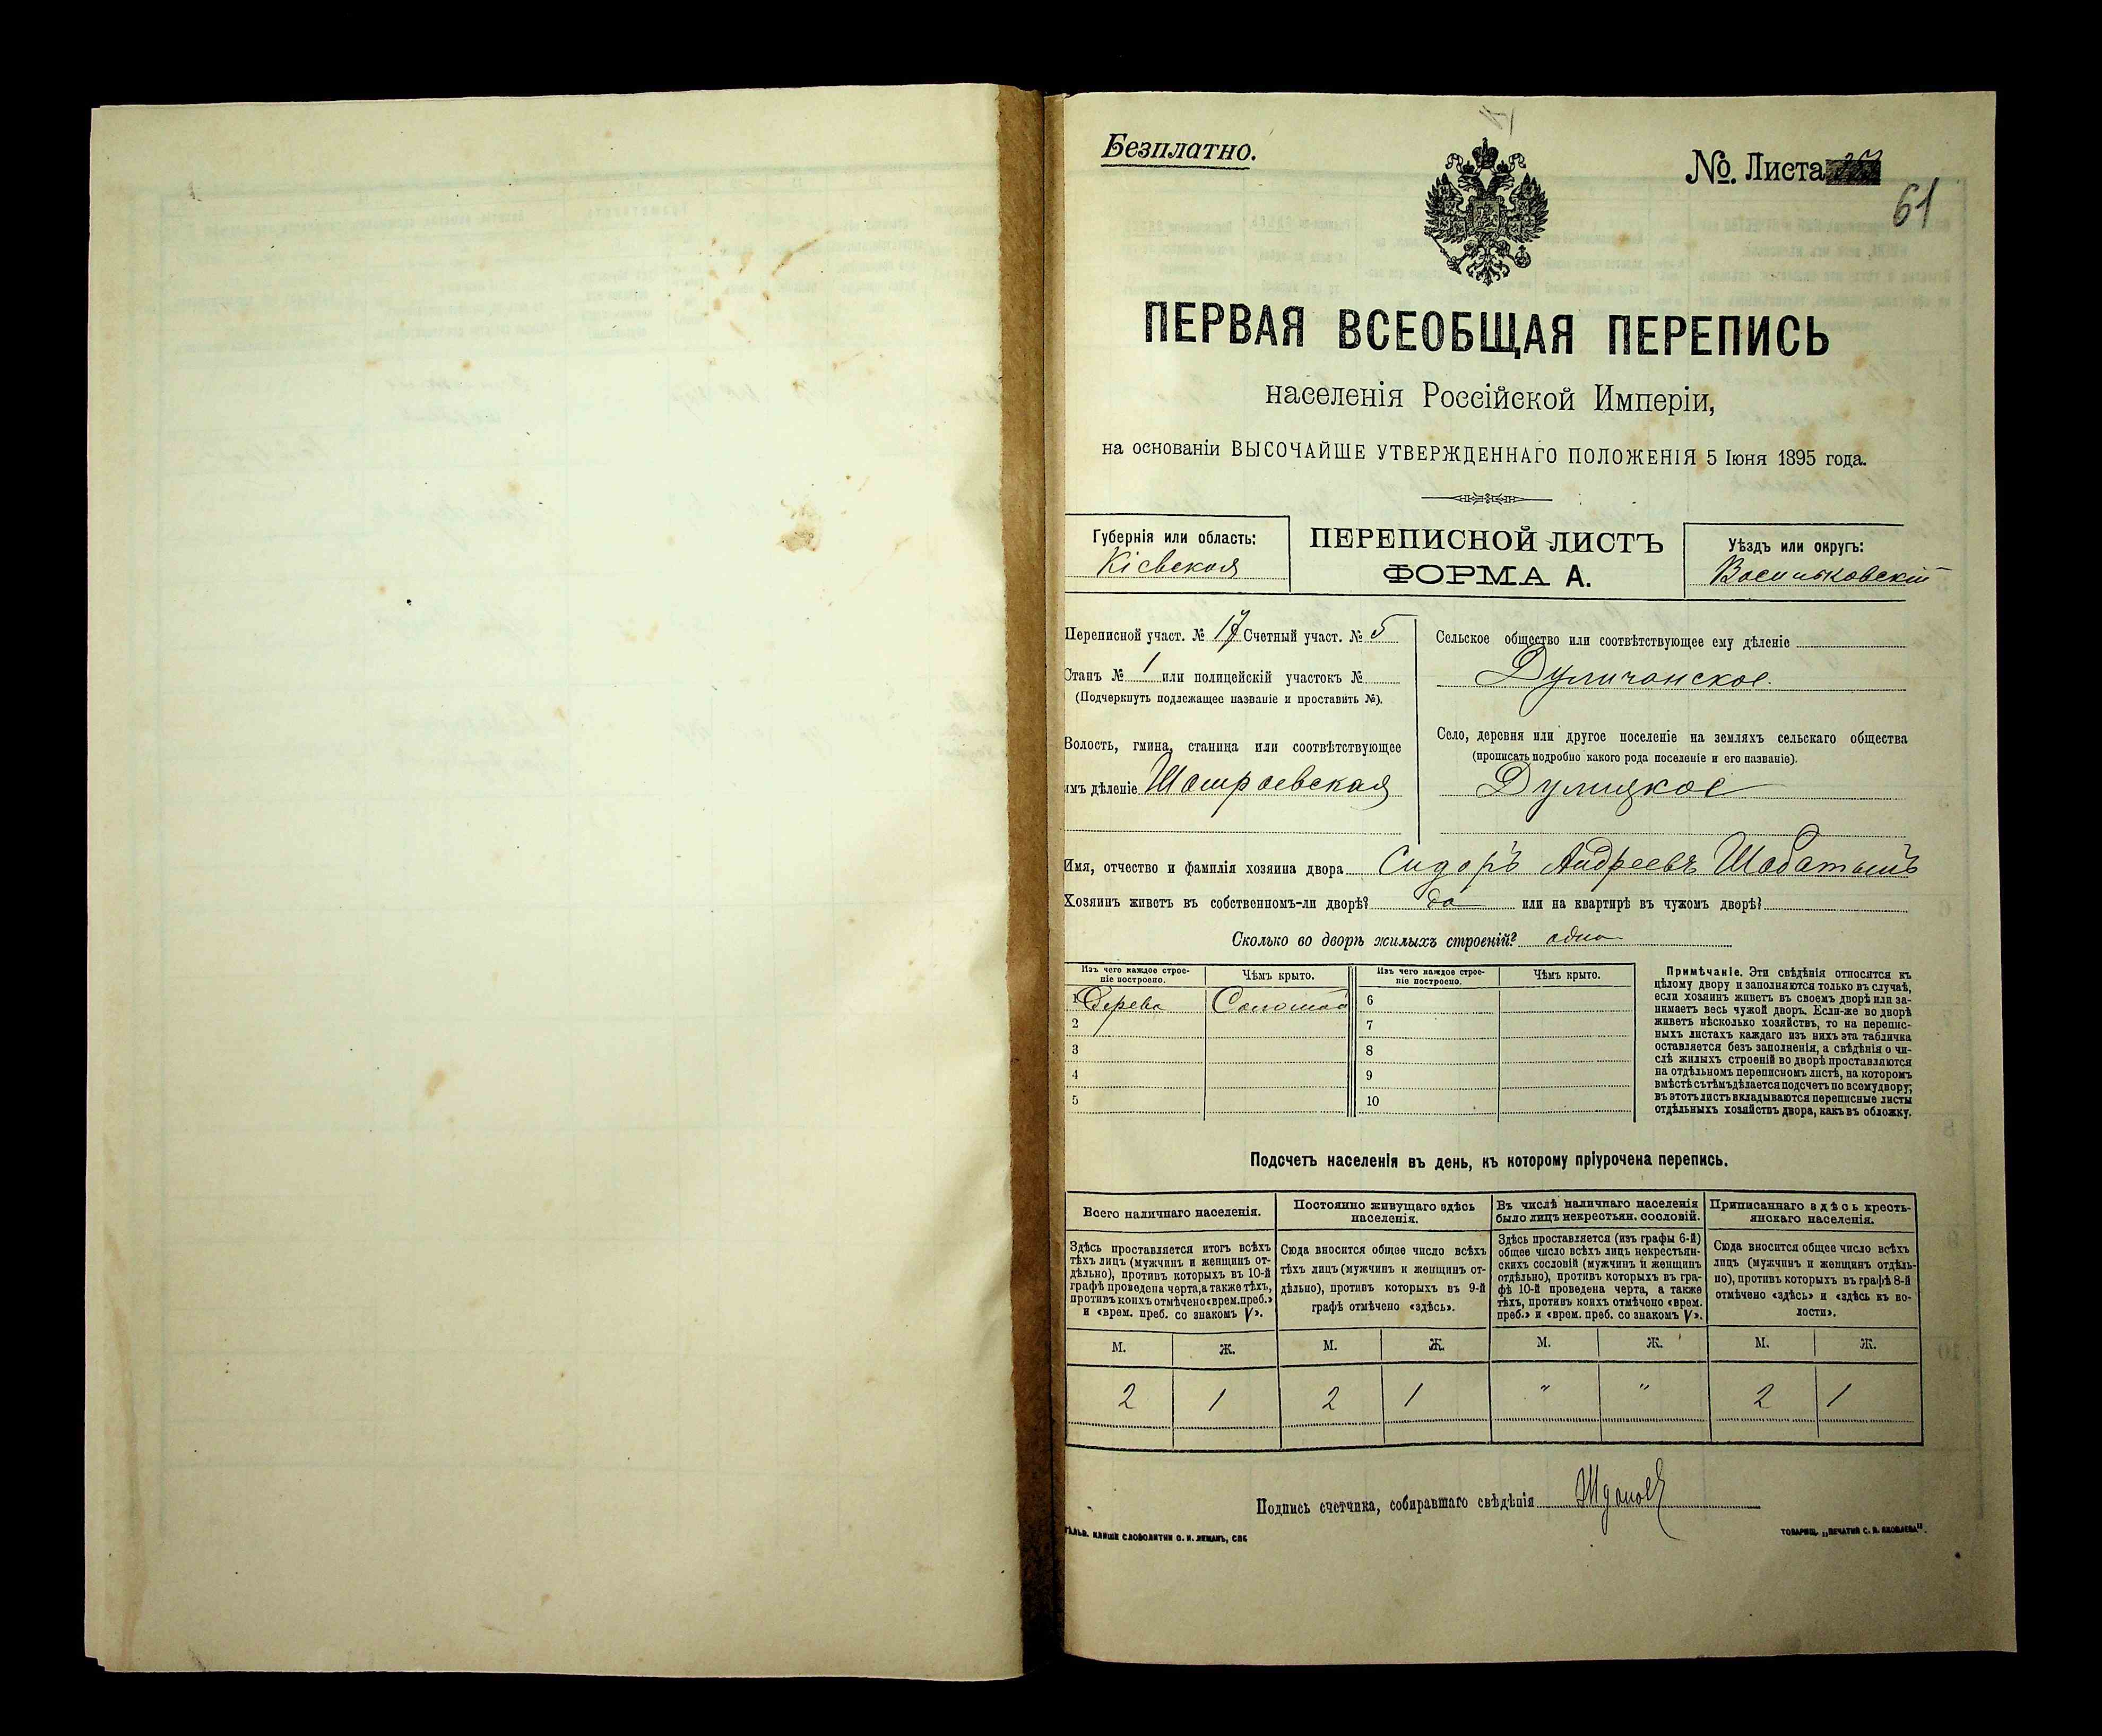 Безплатно.
№. Листа
61
ПЕРВАЯ ВСЕОБЩАЯ ПЕРЕПИСЬ
населенія Россійской Имперіи,
на основаніи ВЫСОЧАЙШЕ УТВЕРЖДЕННАГО ПОЛОЖЕНІЯ 5 Іюня 1895 года.
Губернія или область:
Кіевская
ПЕРЕПИСНОЙ ЛИСТЪ
ФОРМА А.
Уѣздъ или округъ:
Васильковскій
Переписной участ. № 17 Счетный участ. № 5
Станъ № 1 или полицейскій участокъ №
(Подчеркнуть подлежащее названіе и проставить №).
Волость, гмина, станица или соотвѣтствующее
имъ дѣленіе Шамраевская
Сельское общество или соотвѣтствующее ему дѣленіе
Дуличанское.
Село, деревня или другое поселеніе на земляхъ сельскаго общества
(прописать подробно какого рода поселеніе и его названіе).
Дулицкое
Имя, отчество и фамилія хозяина двора Сидоръ Андреевъ
Хозяинъ живетъ въ собственномъ-ли дворѣ? да или на квартирѣ въ чужомъ дворѣ?
Сколько во дворѣ жилыхъ строеній? одно
Изъ чего каждое строе-
ніе построено.
Чѣмъ крыто.
Изъ чего каждое строе-
ніе построено.
Чѣмъ крыто.
1 Дерева Соломой 6
2 7
3 8
4 9
5 10
Примѣчаніе. Эти свѣдѣнія относятся къ
цѣлому двору и заполняются только въ случаѣ,
если хозяинъ живетъ въ своемъ дворѣ или за-
нимаетъ весь чужой дворъ. Если-же во дворѣ
живетъ нѣсколько хозяйствъ, то на перепис-
ныхъ листахъ каждаго изъ нихъ эта табличка
оставляется безъ заполненія, а свѣдѣнія о чи-
слѣ жилыхъ строеній во дворѣ проставляются
на отдѣльномъ переписномъ листѣ, на которомъ
вмѣстѣ съ тѣмъ дѣлается подсчетъ по всему двору;
въ этотъ листъ вкладываются переписные листы
отдѣльныхъ хозяйствъ двора, какъ въ обложку.
Подсчетъ населенія въ день, къ которому пріурочена перепись.
Всего наличнаго населенія.
Здѣсь проставляется итогъ всѣхъ
тѣхъ лицъ (мужчинъ и женщинъ от-
дѣльно), противъ которыхъ въ 10-й
графѣ проведена черта, а также тѣхъ,
противъ коихъ отмѣчено «врем. преб.»
и «врем. преб. со знакомъ V».
Постоянно живущаго здѣсь
населенія.
Сюда вносится общее число всѣхъ
тѣхъ лицъ (мужчинъ и женщинъ от-
дѣльно), противъ которыхъ въ 9-й
графѣ отмѣчено «здѣсь».
Въ числѣ наличнаго населенія
было лицъ некрестьян. сословій.
Здѣсь проставляется (изъ графы 6-й)
общее число всѣхъ лицъ некрестьян-
скихъ сословій (мужчинъ и женщинъ
отдѣльно), противъ которыхъ въ гра-
фѣ 10-й проведена черта, а также
тѣхъ, противъ коихъ отмѣчено «врем.
преб.» и «врем. преб. со знакомъ V».
Приписаннаго здѣсь кресть-
янскаго населенія.
Сюда вносится общее число всѣхъ
лицъ (мужчинъ и женщинъ отдѣль-
но), противъ которыхъ въ графѣ 8-й
отмѣчено «здѣсь» и «здѣсь къ во-
лости».
М. Ж. М. Ж. М. Ж. М. Ж.
2 1 2 1 " " 2 1
Подпись счетчика, собиравшаго свѣдѣнія
ГАЛЬВ. КЛИШЕ СЛОВОЛИТНИ О. И. ЛЕМАНЪ, СПБ
ТОВАРИЩ. „ПЕЧАТНЯ С. П. ЯКОВЛЕВА".